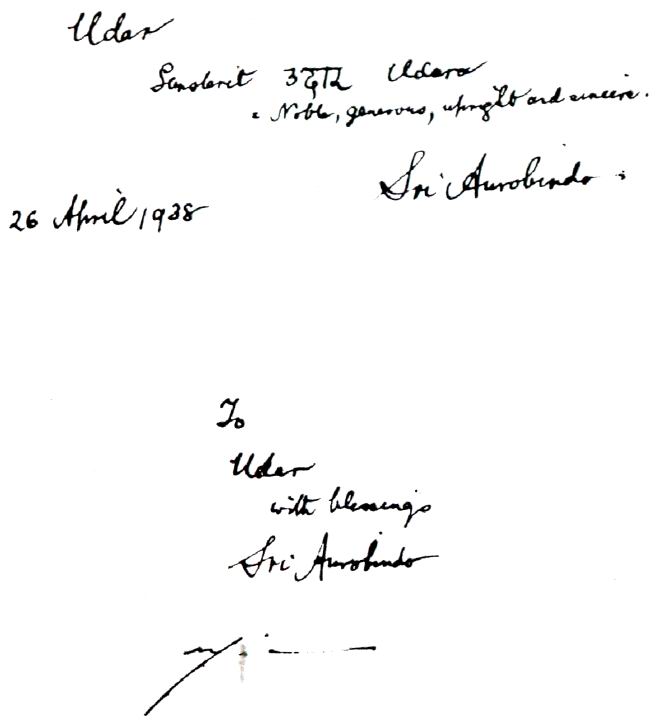 Udar
Sanskrit उदार Udara
= Noble, generous, upright and sincere.
Sri Aurobindo.
26 April 1938
To
Udar
with blessings
Sri Aurobindo